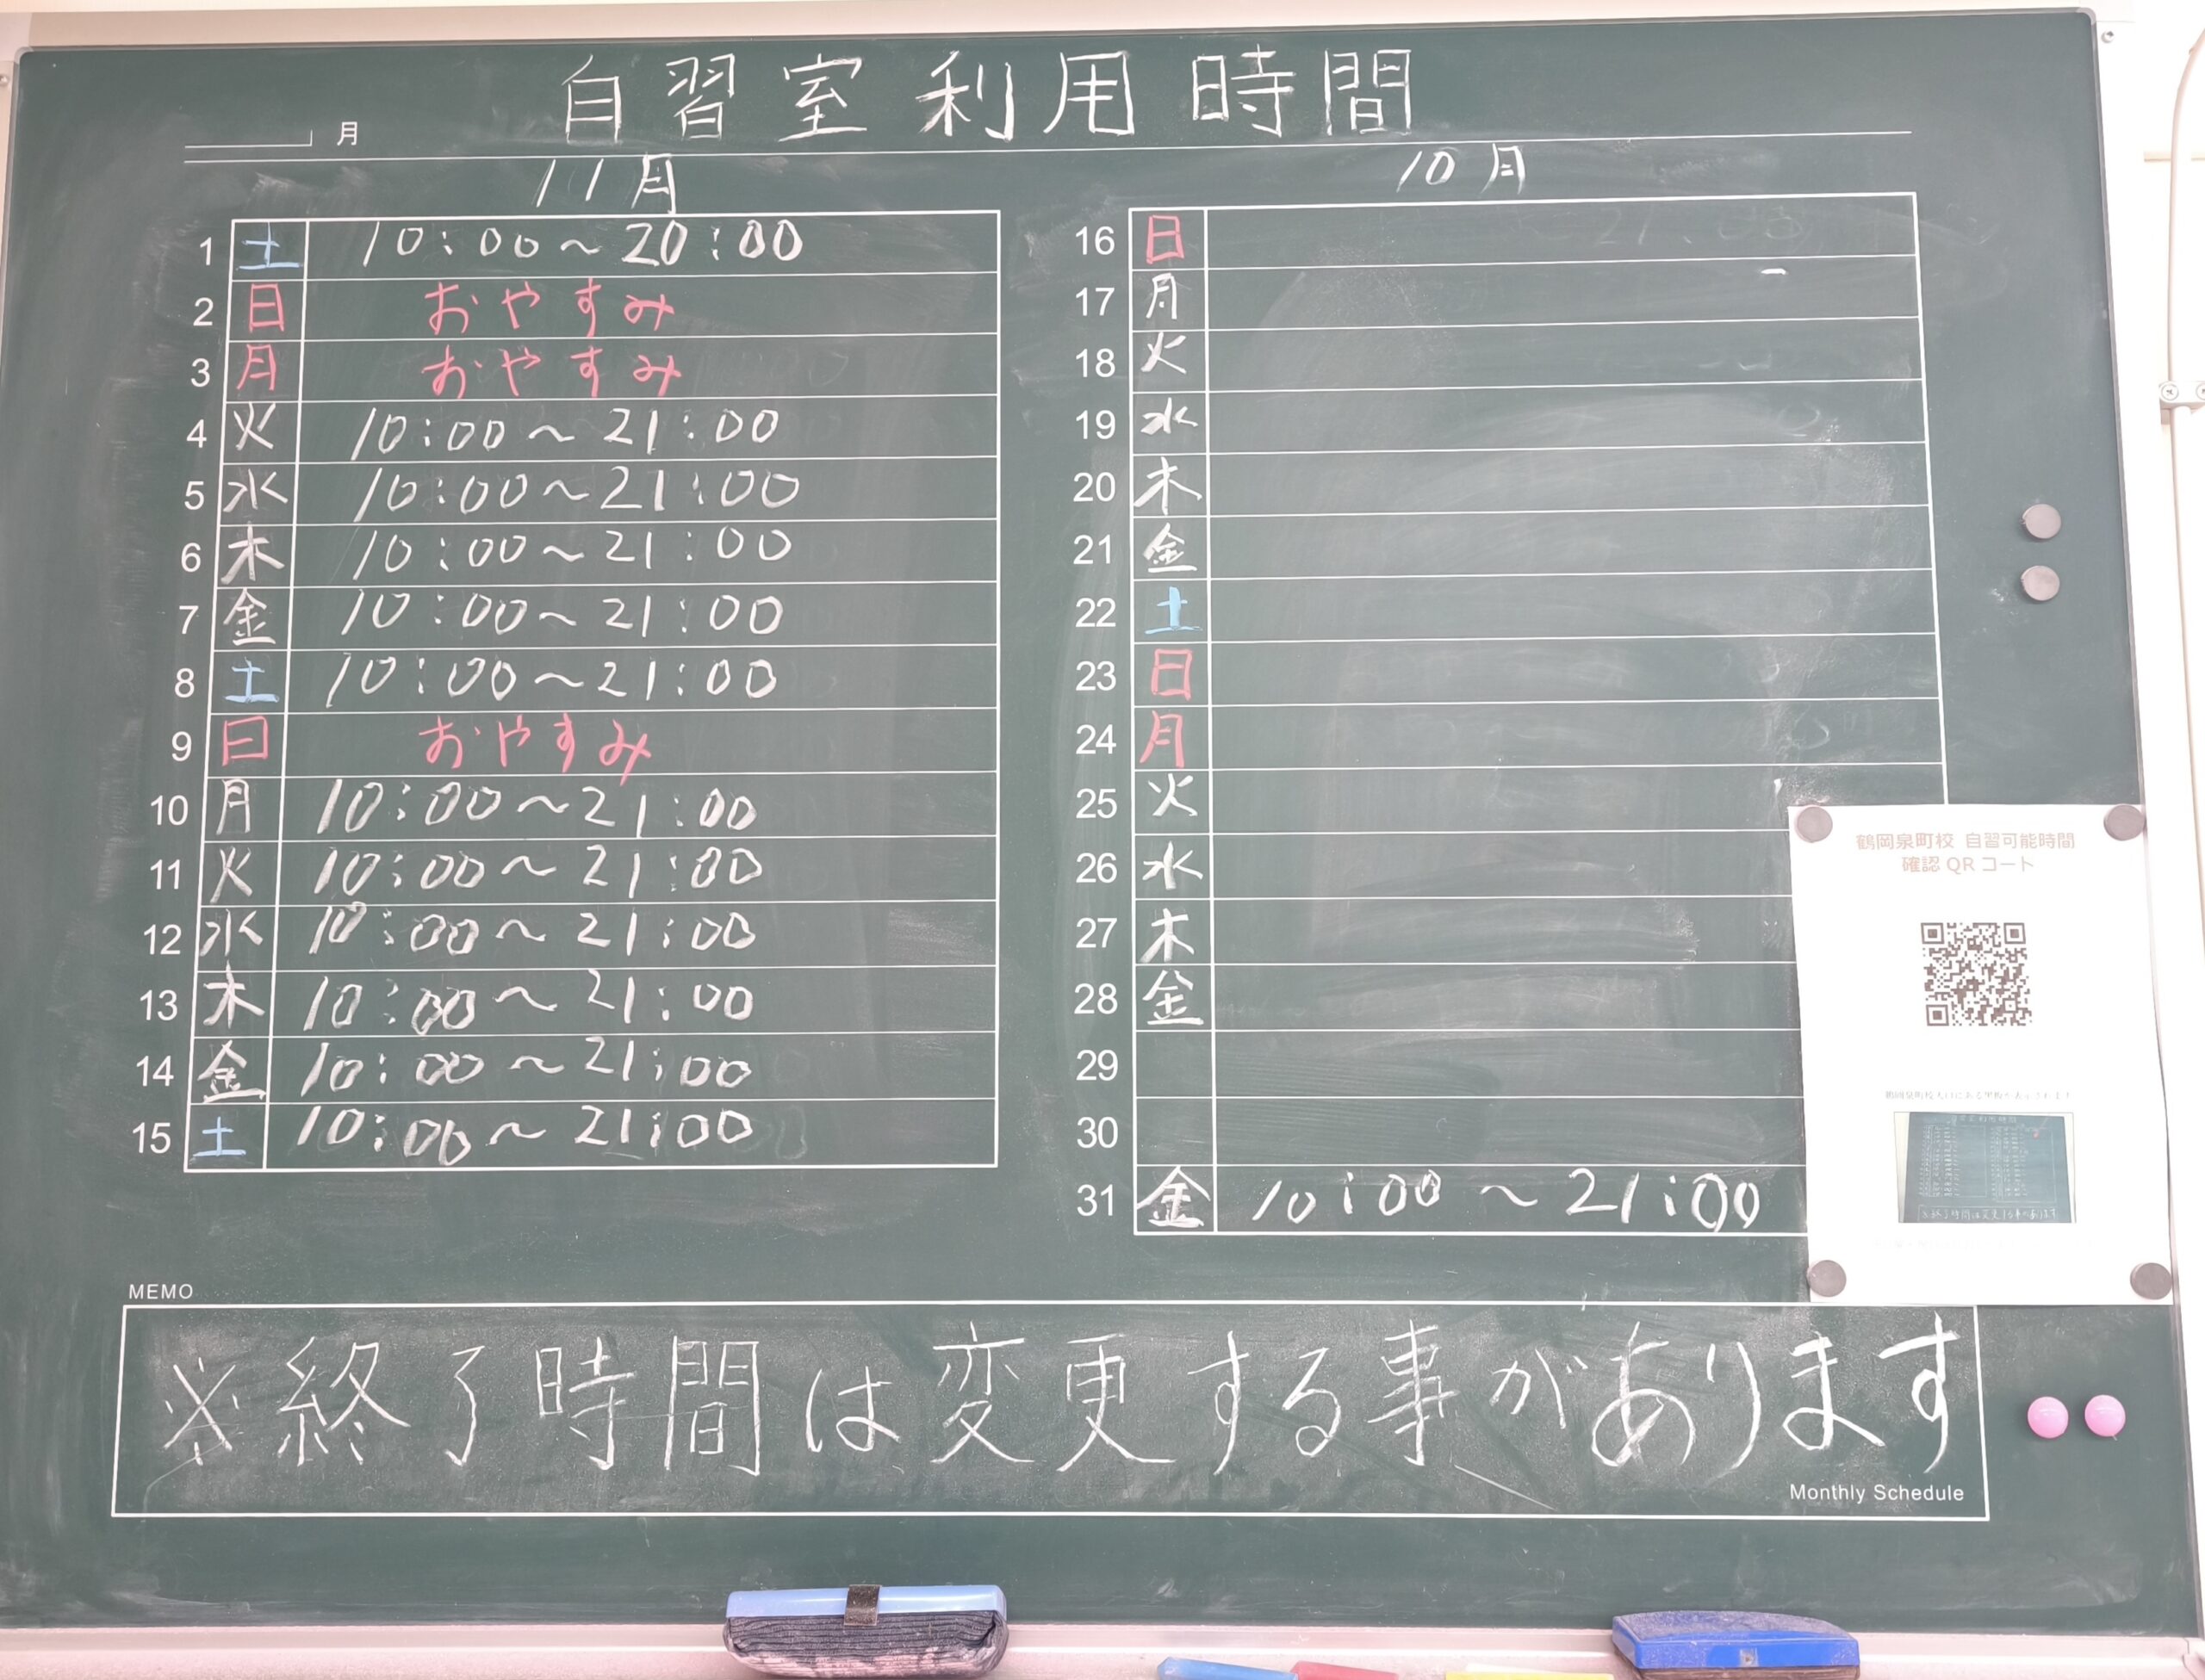 自習室利用時間
月
11月
1 土 10:00～20:00
2 日 おやすみ
3 月 おやすみ
4 火 10:00～21:00
5 水 10:00～21:00
6 木 10:00～21:00
7 金 10:00～21:00
8 土 10:00～21:00
9 日 おやすみ
10 月 10:00～21:00
11 火 10:00～21:00
12 水 10:00～21:00
13 木 10:00～21:00
14 金 10:00～21:00
15 土 10:00～21:00
10月
16 日
17 月
18 火
19 水
20 木
21 金
22 土
23 日
24 月
25 火
26 水
27 木
28 金
29
30
31 金 10:00～21:00
鶴岡泉町校 自習可能時間
確認 QR コート
MEMO
※終了時間は変更する事があります
Monthly Schedule